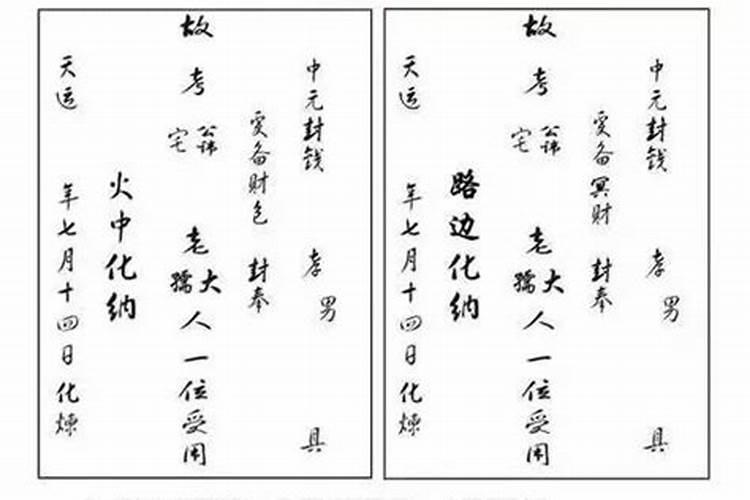 中元封钱 孝男 具
爰备财包 封奉
故考公讳 老大人一位受用
宅 孺
火中化纳
天运 年七月十四日化炼
中元封钱 孝男 具
爰备冥财 封奉
故考公讳 老大人一位受用
宅 孺
路边化纳
天运 年七月十四日化炼